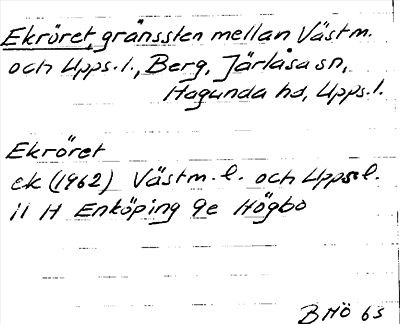 Ekröret, gränssten mellan Västm.
och Upps.l., Berg, Järlåsa sn,
Hagunda hd, Upps.l.
Ekröret
ek (1962) Västm.l. och Upps.l.
11 H Enköping 9e Högbo
BHÖ 63